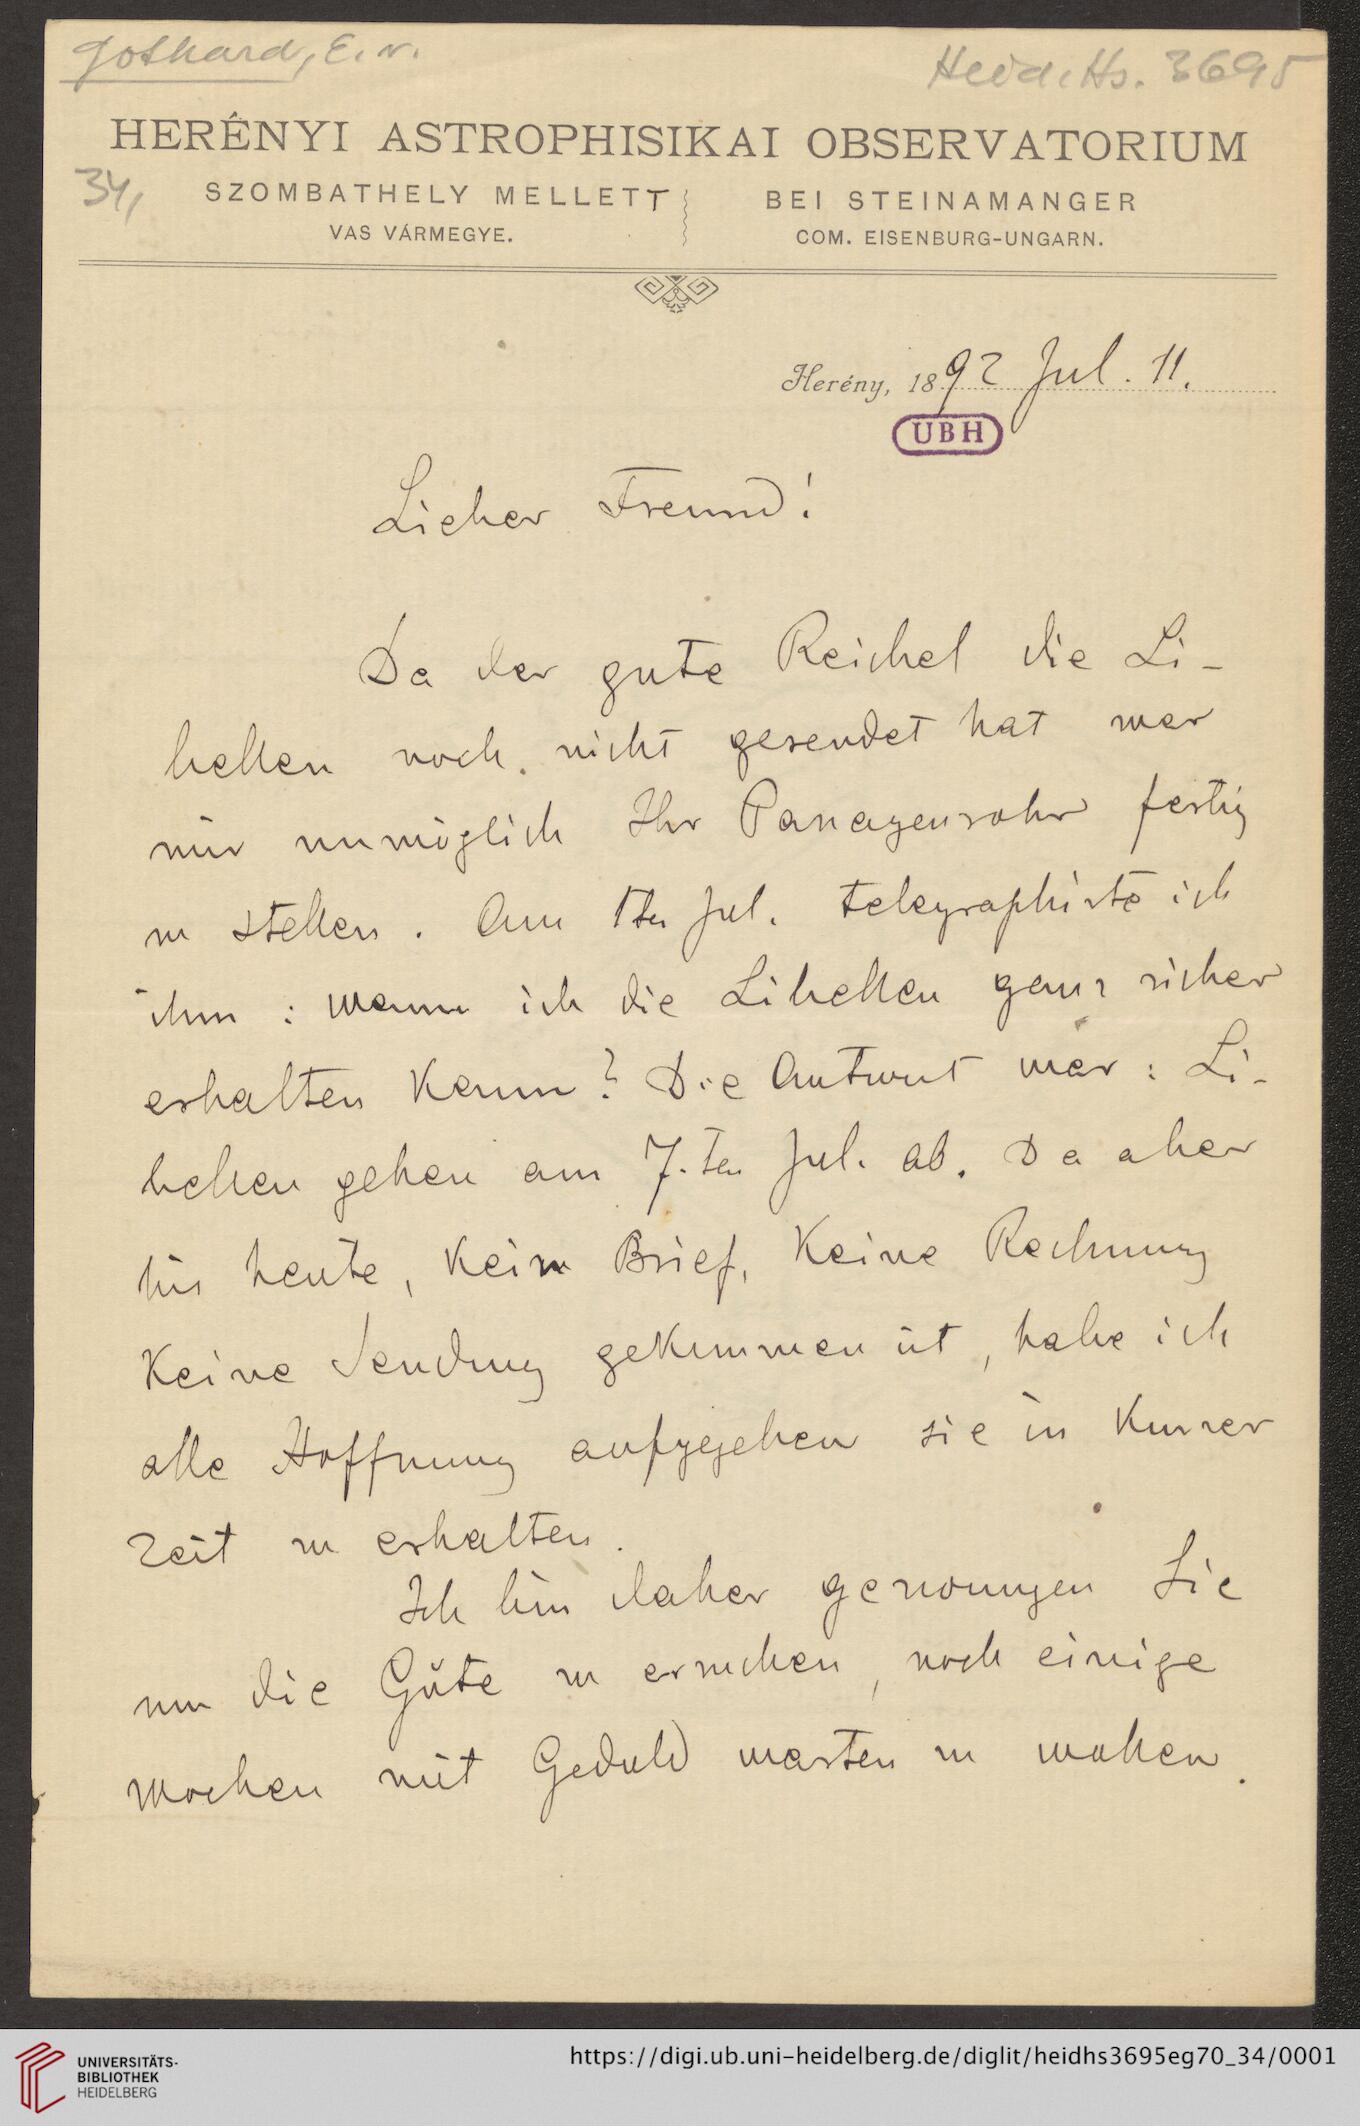 Gothard, E. v.
Heid. Hs. 3695
HERÉNYI ASTROPHISIKAI OBSERVATORIUM
34,
SZOMBATHELY MELLETT
VAS VÁRMEGYE.
BEI STEINAMANGER
COM. EISENBURG-UNGARN.
Herény, 1892 Jul. 11.
UBH
Lieber Freund!
Da der gute Reichel die Li-
bellen noch nicht gesendet hat war
mir unmöglich Ihr Passagenrohr fertig
zu stellen. Am 1ten Jul. telegraphirte ich
ihm : wann ich die Libellen ganz sicher
erhalten kann? Die Antwort war : Li-
bellen gehen am 7.ten Jul. ab. Da aber
bis heute, kein Brief, keine Rechnung
keine Sendung gekommen ist, habe ich
alle Hoffnung aufgegeben sie in kurzer
Zeit zu erhalten.
Ich bin daher gezwungen Sie
um die Güte zu ersuchen, noch einige
Wochen mit Geduld warten zu wollen.
UNIVERSITÄTS-
BIBLIOTHEK
HEIDELBERG
https://digi.ub.uni-heidelberg.de/diglit/heidhs3695eg70_34/0001